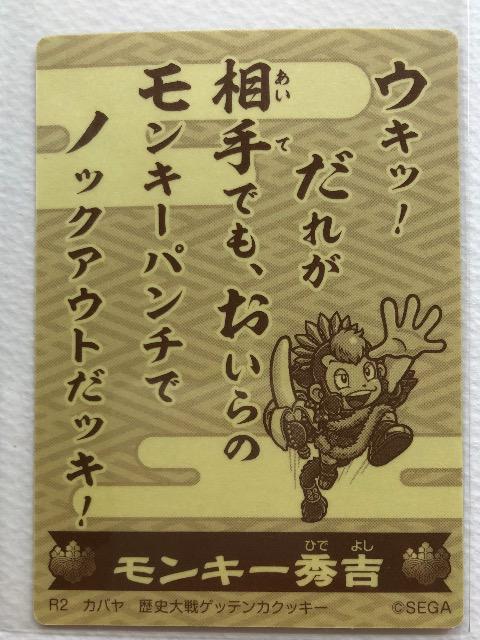 ウキッ！
だれが
相手でも、おいらの
モンキーパンチで
ノックアウトだッキ！
あい
て
モンキー秀吉
ひで
よし
R2 カバヤ 歴史大戦ゲッテンカクッキー
©SEGA